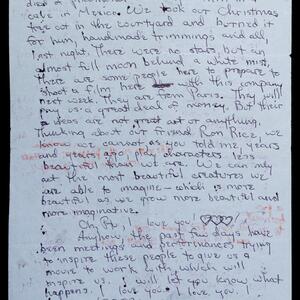 died a
cabe in Mexico. We took our Christmas
tree out in the courtyard and burned it
for him, handmade trimmings and all,
last night. There were no stars, but an
almost full moon behind a white mist.
There are some people here to prepare to
shoot a film here with this company
next week. They are from Paris. They will
pay us a great deal of money. But their
ideas are not great art or anything.
Thinking about our friend Ron Rice, we
know we cannot as you told me, years
and years ago, play characters less
beautiful than we are. We can only
act the most beautiful creatures we
are able to imagine — which is more
beautiful as we grow more beautiful and
more imaginative.
Oh, I love you!
Anyhow, the past few days have
been meetings and performances trying
to inspire these people to give us a
movie to work with which will
inspire us. I will let you know what
happens. I love you. I love you.